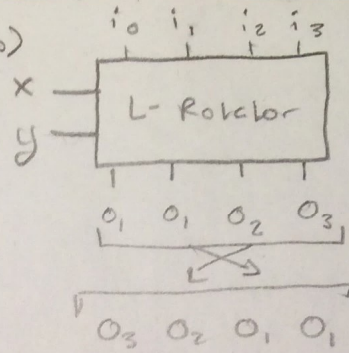 b)
i₀ i₁ i₂ i₃
x
L-Rotator
y
O₁ O₁ O₂ O₃
O₃ O₂ O₁ O₁